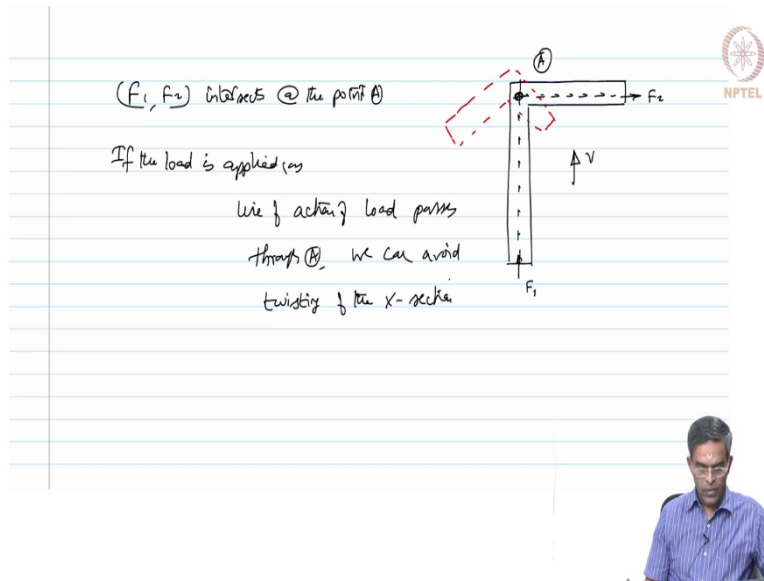 (F1, F2) intersects @ the point A
If the load is applied, as
line of action of load passes
through A, we can avoid
twisting of the x-section
A
F2
V
F1
NPTEL